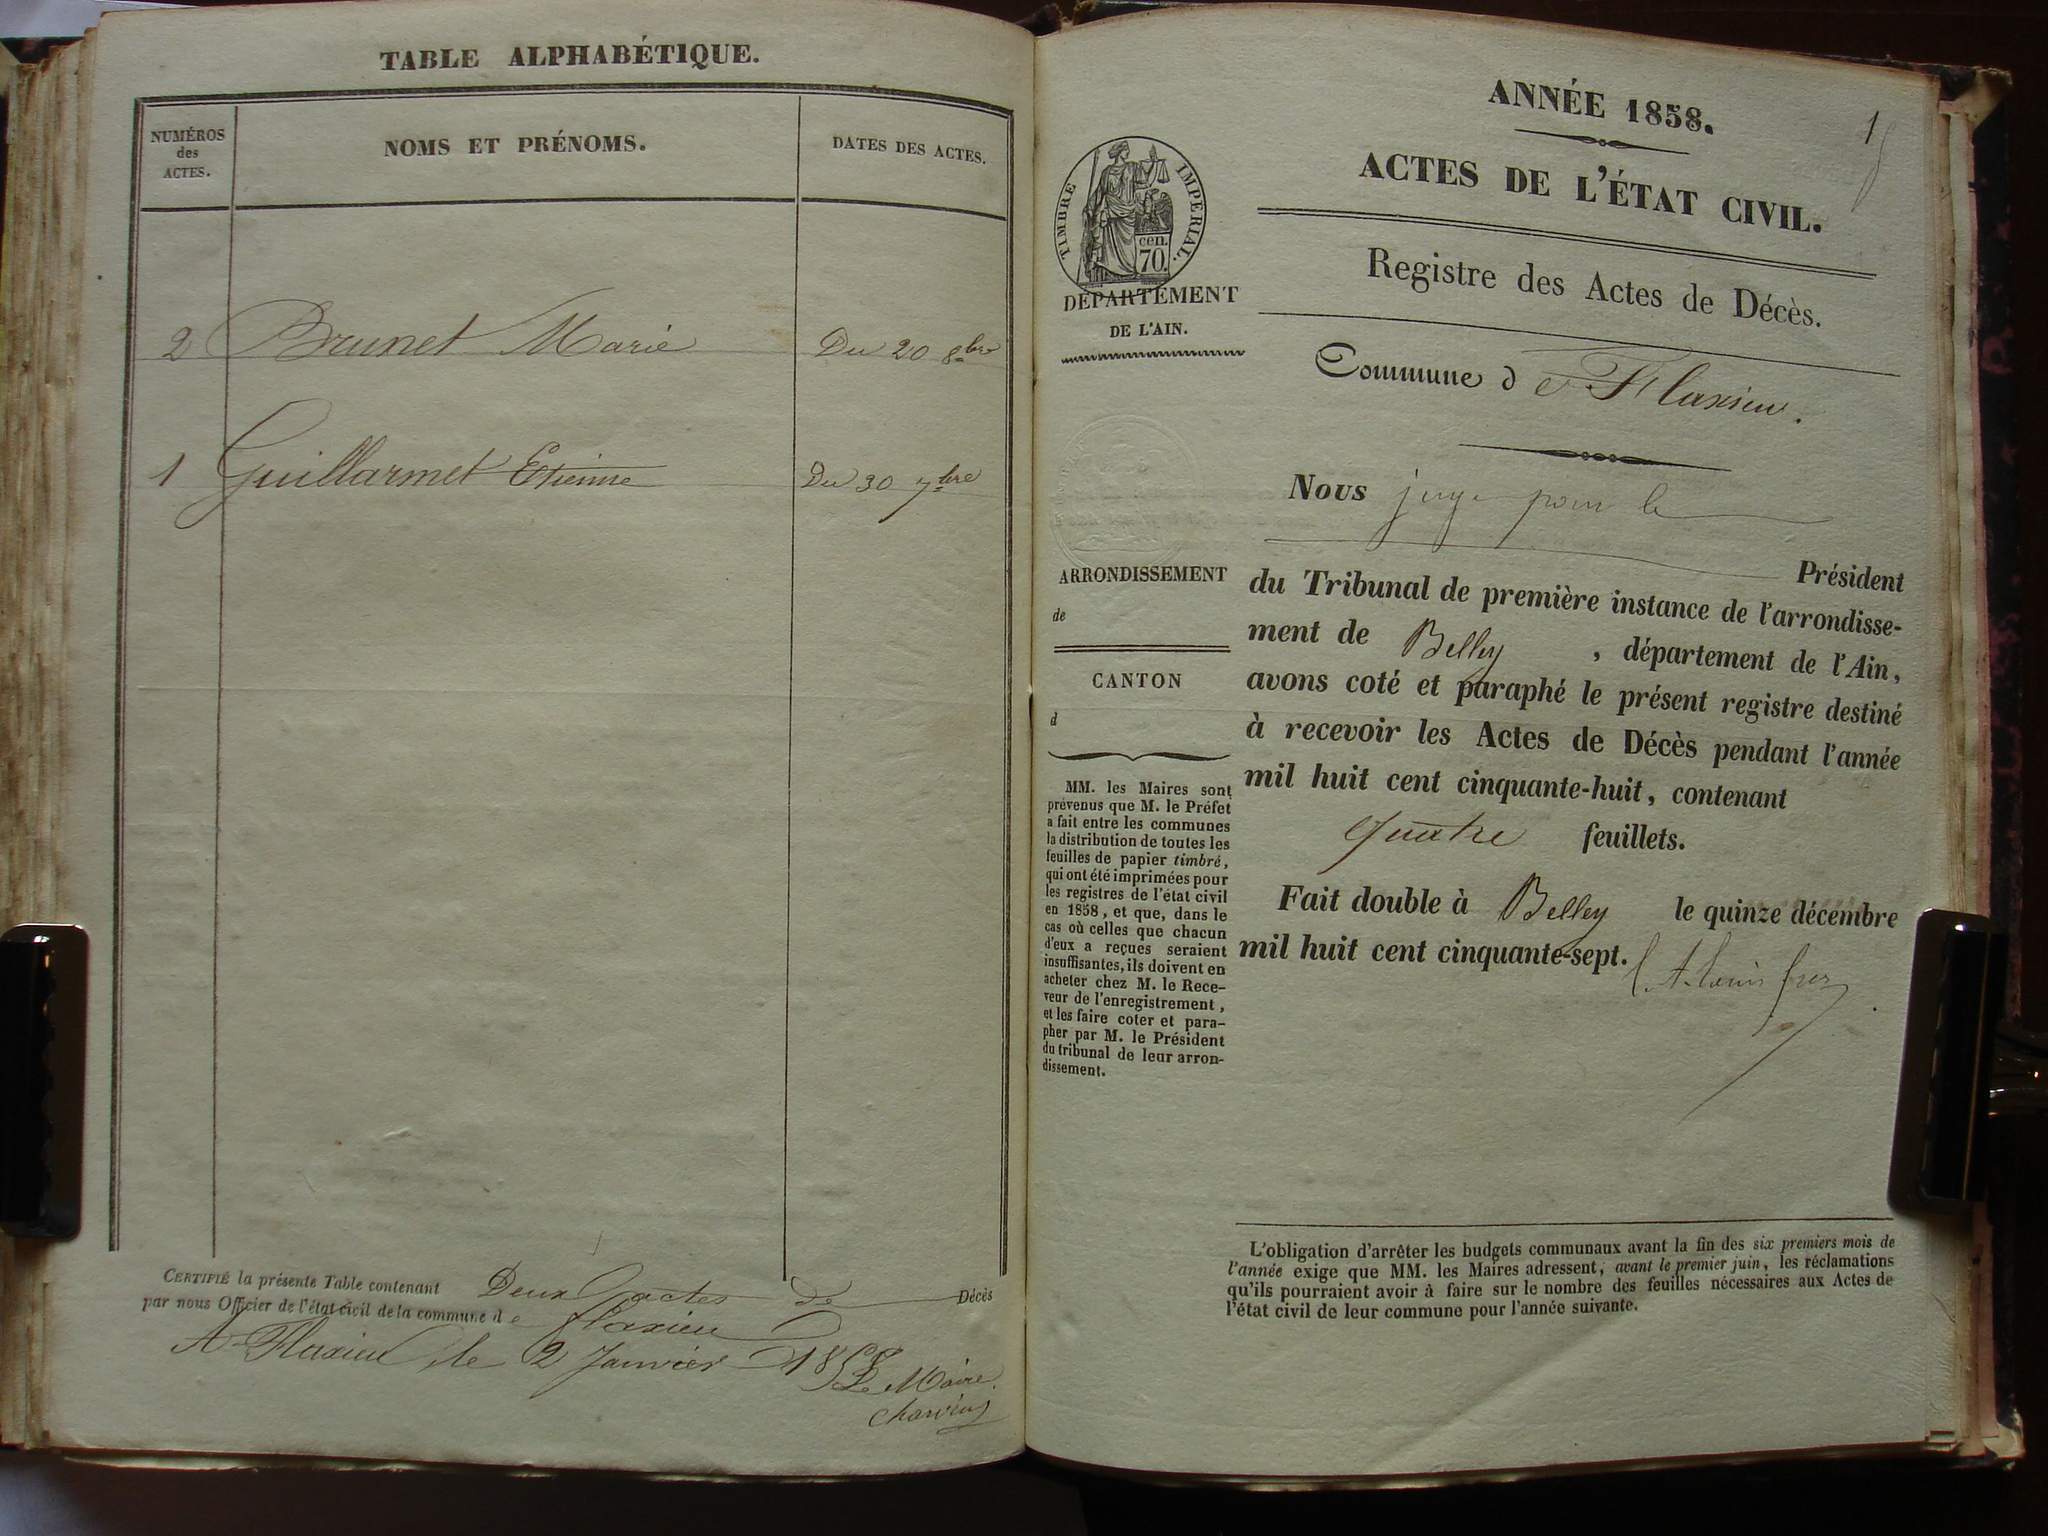 TABLE ALPHABÉTIQUE.
NUMÉROS
des
ACTES.
NOMS ET PRÉNOMS.
DATES DES ACTES.
2 Brunet Marie Du 20 8bre
1 Guillarmet Etienne Du 30 7bre
CERTIFIÉ la présente Table contenant Deux actes de Décès
par nous Officier de l'état civil de la commune de flaxieu
A Flaxieu le 2 Janvier 1858
Le Maire.
1
ANNÉE 1858.
ACTES DE L'ÉTAT CIVIL.
TIMBRE IMPERIAL.
cen.
70.
DÉPARTEMENT
DE L'AIN.
Registre des Actes de Décès.
Commune de Flaxieu.
Nous juge pour le
Président
du Tribunal de première instance de l'arrondisse-
ment de Belley, département de l'Ain,
avons coté et paraphé le présent registre destiné
à recevoir les Actes de Décès pendant l'année
mil huit cent cinquante-huit, contenant
quatre feuillets.
Fait double à Belley le quinze décembre
mil huit cent cinquante-sept.
ARRONDISSEMENT
de
CANTON
d
MM. les Maires sont
prévenus que M. le Préfet
a fait entre les communes
la distribution de toutes les
feuilles de papier timbré,
qui ont été imprimées pour
les registres de l'état civil
en 1858, et que, dans le
cas où celles que chacun
d'eux a reçues seraient
insuffisantes, ils doivent en
acheter chez M. le Rece-
veur de l'enregistrement,
et les faire coter et para-
pher par M. le Président
du tribunal de leur arron-
dissement.
L'obligation d'arrêter les budgets communaux avant la fin des six premiers mois de
l'année exige que MM. les Maires adressent, avant le premier juin, les réclamations
qu'ils pourraient avoir à faire sur le nombre des feuilles nécessaires aux Actes de
l'état civil de leur commune pour l'année suivante.